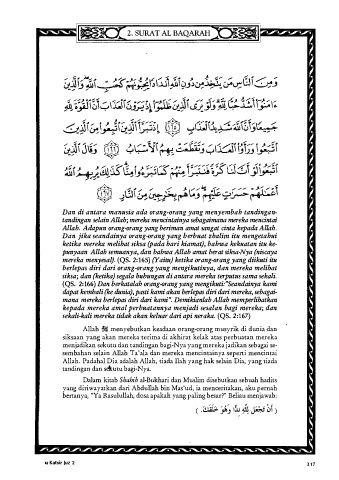 2. SURAT AL BAQARAH
وَمِنَ النَّاسِ مَن يَتَّخِذُ مِن دُونِ اللَّهِ أَندَادًا يُحِبُّونَهُمْ كَحُبِّ اللَّهِ وَالَّذِينَ
ءَامَنُوا أَشَدُّ حُبًّا لِلَّهِ وَلَوْ يَرَى الَّذِينَ ظَلَمُوا إِذْ يَرَوْنَ الْعَذَابَ أَنَّ الْقُوَّةَ لِلَّهِ
جَمِيعًا وَأَنَّ اللَّهَ شَدِيدُ الْعَذَابِ ١٦٥ إِذْ تَبَرَّأَ الَّذِينَ اتُّبِعُوا مِنَ الَّذِينَ
اتَّبَعُوا وَرَأَوُا الْعَذَابَ وَتَقَطَّعَتْ بِهِمُ الْأَسْبَابُ ١٦٦ وَقَالَ الَّذِينَ
اتَّبَعُوا لَوْ أَنَّ لَنَا كَرَّةً فَنَتَبَرَّأَ مِنْهُمْ كَمَا تَبَرَّءُوا مِنَّا كَذَلِكَ يُرِيهِمُ اللَّهُ
أَعْمَالَهُمْ حَسَرَاتٍ عَلَيْهِمْ وَمَا هُم بِخَارِجِينَ مِنَ النَّارِ ١٦٧
Dan di antara manusia ada orang-orang yang menyembah tandingan-
tandingan selain Allah; mereka mencintainya sebagaimana mereka mencintai
Allah. Adapun orang-orang yang beriman amat sangat cinta kepada Allah.
Dan jika seandainya orang-orang yang berbuat zhalim itu mengetahui
ketika mereka melihat siksa (pada hari kiamat), bahwa kekuatan itu ke-
punyaan Allah semuanya, dan bahwa Allah amat berat siksa-Nya (niscaya
mereka menyesal). (QS. 2:165) (Yaitu) ketika orang-orang yang diikuti itu
berlepas diri dari orang-orang yang mengikutinya, dan mereka melihat
siksa; dan (ketika) segala hubungan di antara mereka terputus sama sekali.
(QS. 2:166) Dan berkatalah orang-orang yang mengikuti:"Seandainya kami
dapat kembali (ke dunia), pasti kami akan berlepas diri dari mereka, sebagai-
mana mereka berlepas diri dari kami". Demikianlah Allah memperlihatkan
kepada mereka amal perbuatannya menjadi sesalan bagi mereka; dan
sekali-kali mereka tidak akan keluar dari api neraka. (QS. 2:167)
Allah ﷻ menyebutkan keadaan orang-orang musyrik di dunia dan
siksaan yang akan mereka terima di akhirat kelak atas perbuatan mereka
menjadikan sekutu dan tandingan bagi-Nya yang mereka jadikan sebagai se-
sembahan selain Allah Ta'ala dan mereka mencintainya seperti mencintai
Allah. Padahal Dia adalah Allah, tiada Ilah yang hak selain Dia, yang tiada
tandingan dan sekutu bagi-Nya.
Dalam kitab Shahih al-Bukhari dan Muslim disebutkan sebuah hadits
yang diriwayatkan dari Abdullah bin Mas'ud, ia menceritakan, aku pernah
bertanya, "Ya Rasulullah, dosa apakah yang paling besar?" Beliau menjawab:
( أَنْ تَجْعَلَ لِلَّهِ نِدًّا وَهُوَ خَلَقَكَ. )
Katsir Juz 2
317